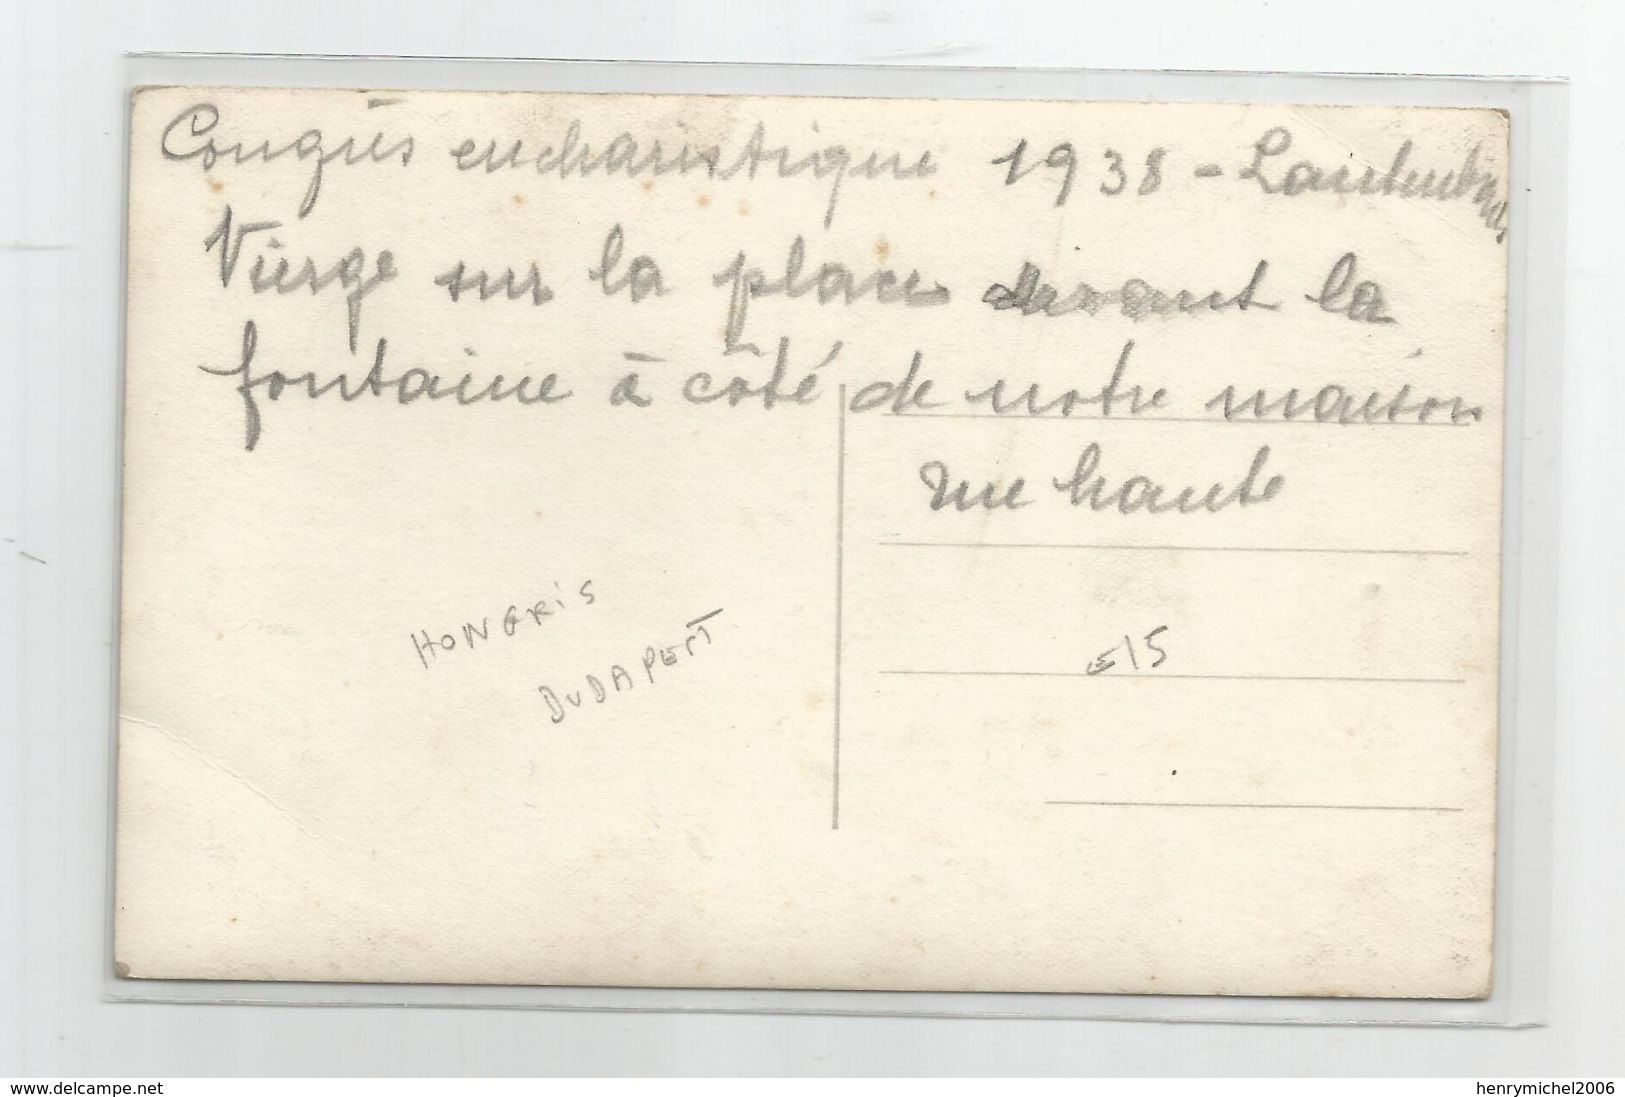 Congrès eucharistique 1938 - Lauterbourg
Vierge sur la place devant la
fontaine à côté de notre maison
rue haute
HONGRIS
BUDAPEST
E15
www.delcampe.net
henrymichel2006